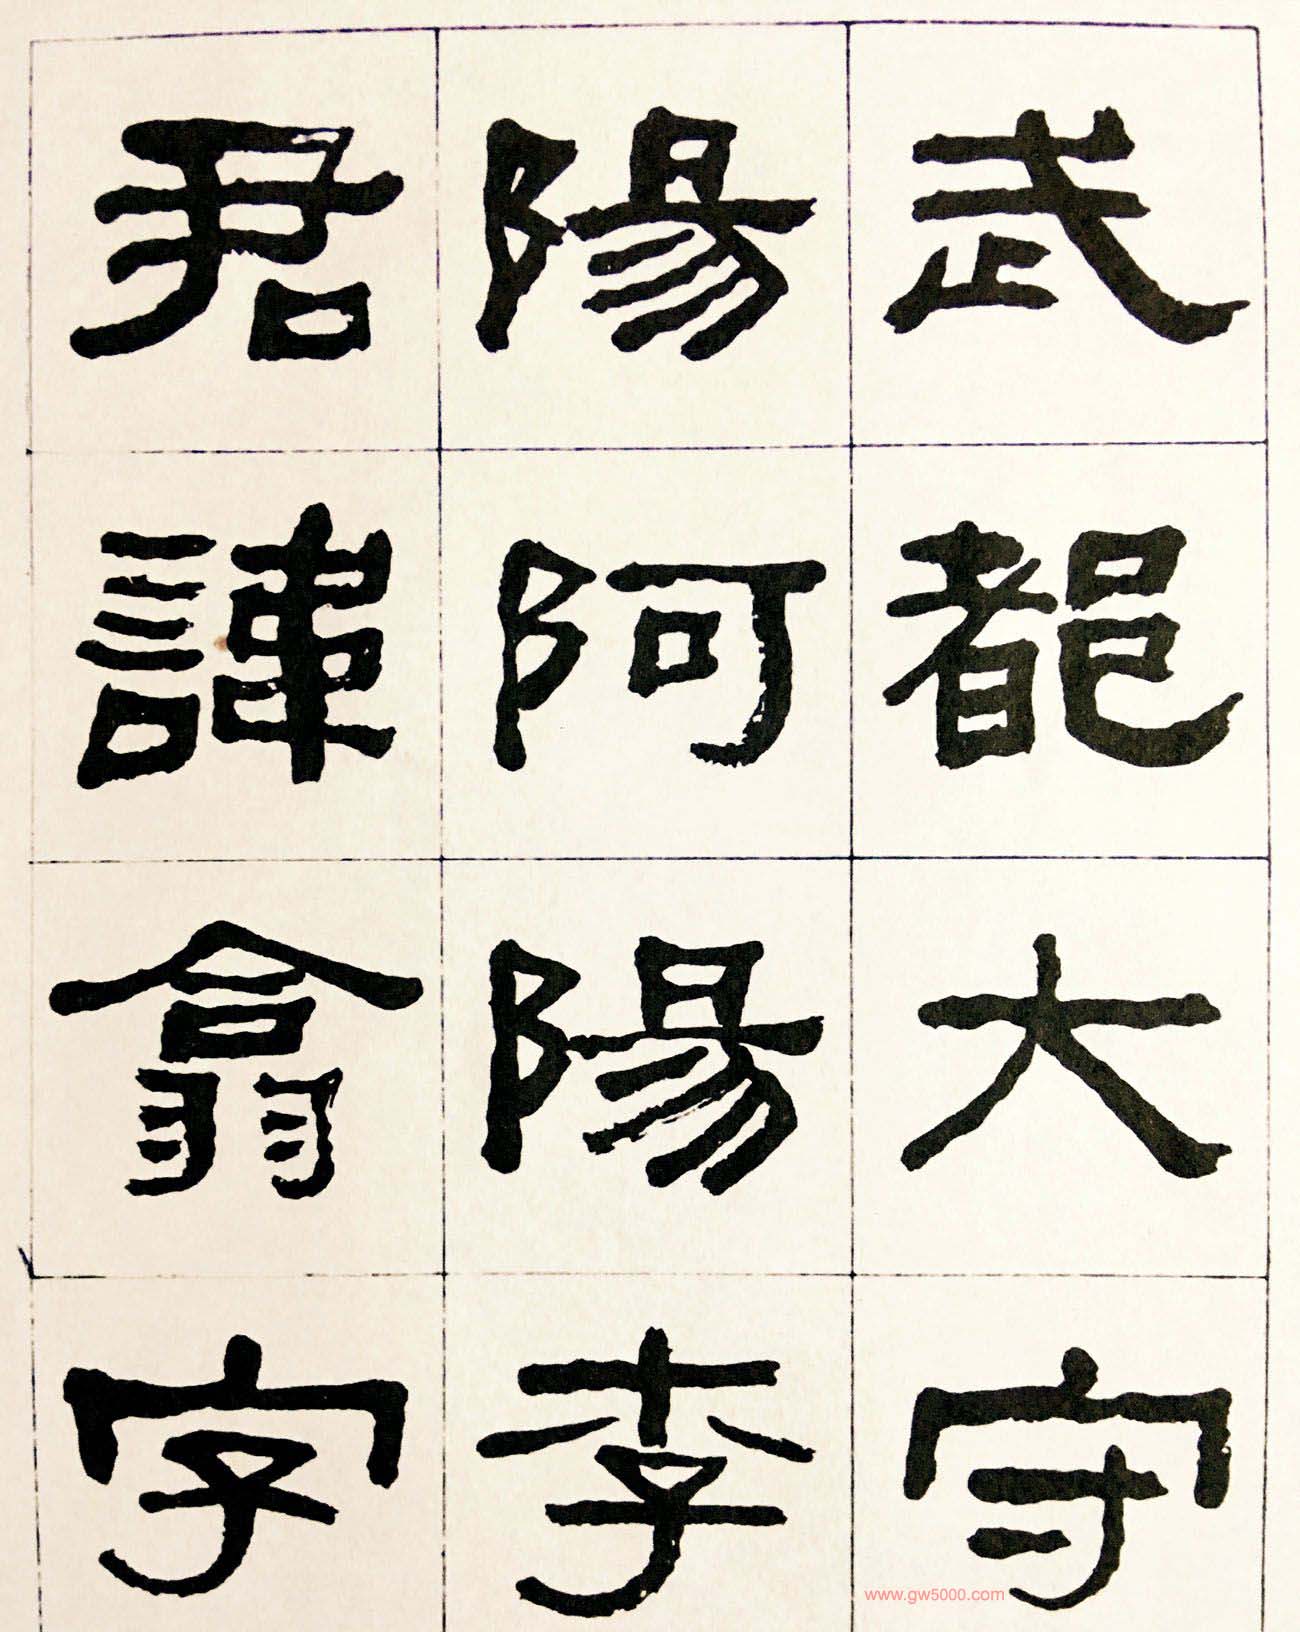 武都大守
陽阿陽李
君諱翕字
www.gw5000.com